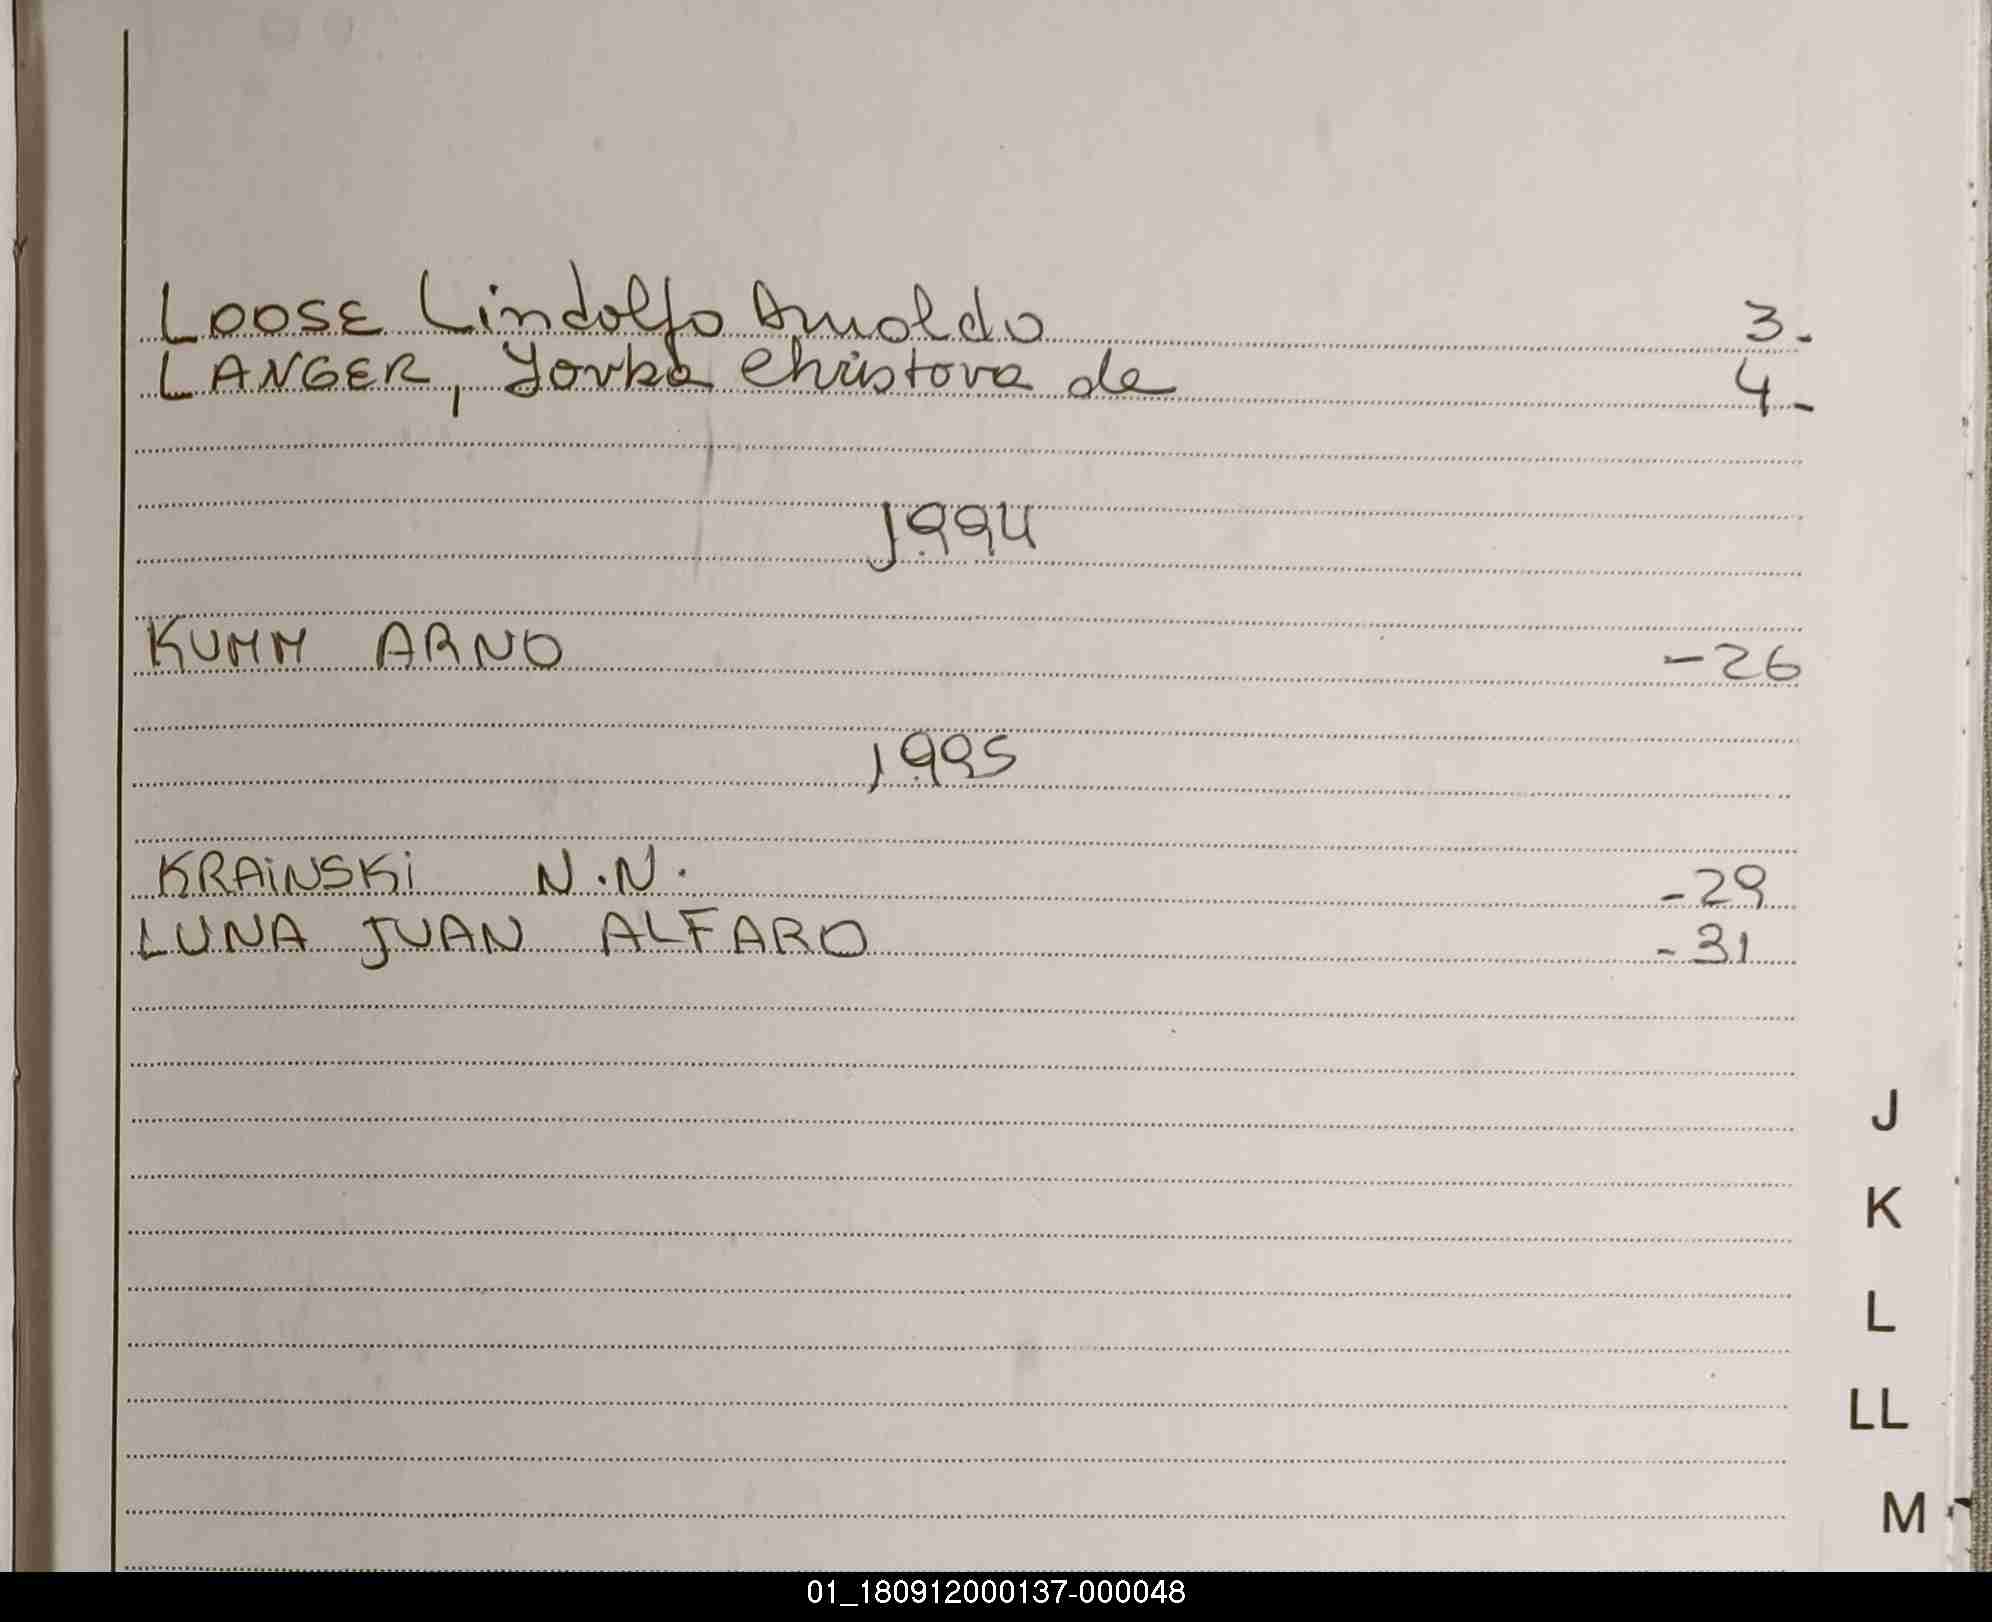 LOOSE Lindolfo Arnoldo 3.
LANGER, Yovka Christova de 4-
1994
KUMM ARNO -26
1995
KRAINSKI N.N. -29
LUNA JUAN ALFARO -31
J
K
L
LL
M
01_180912000137-000048